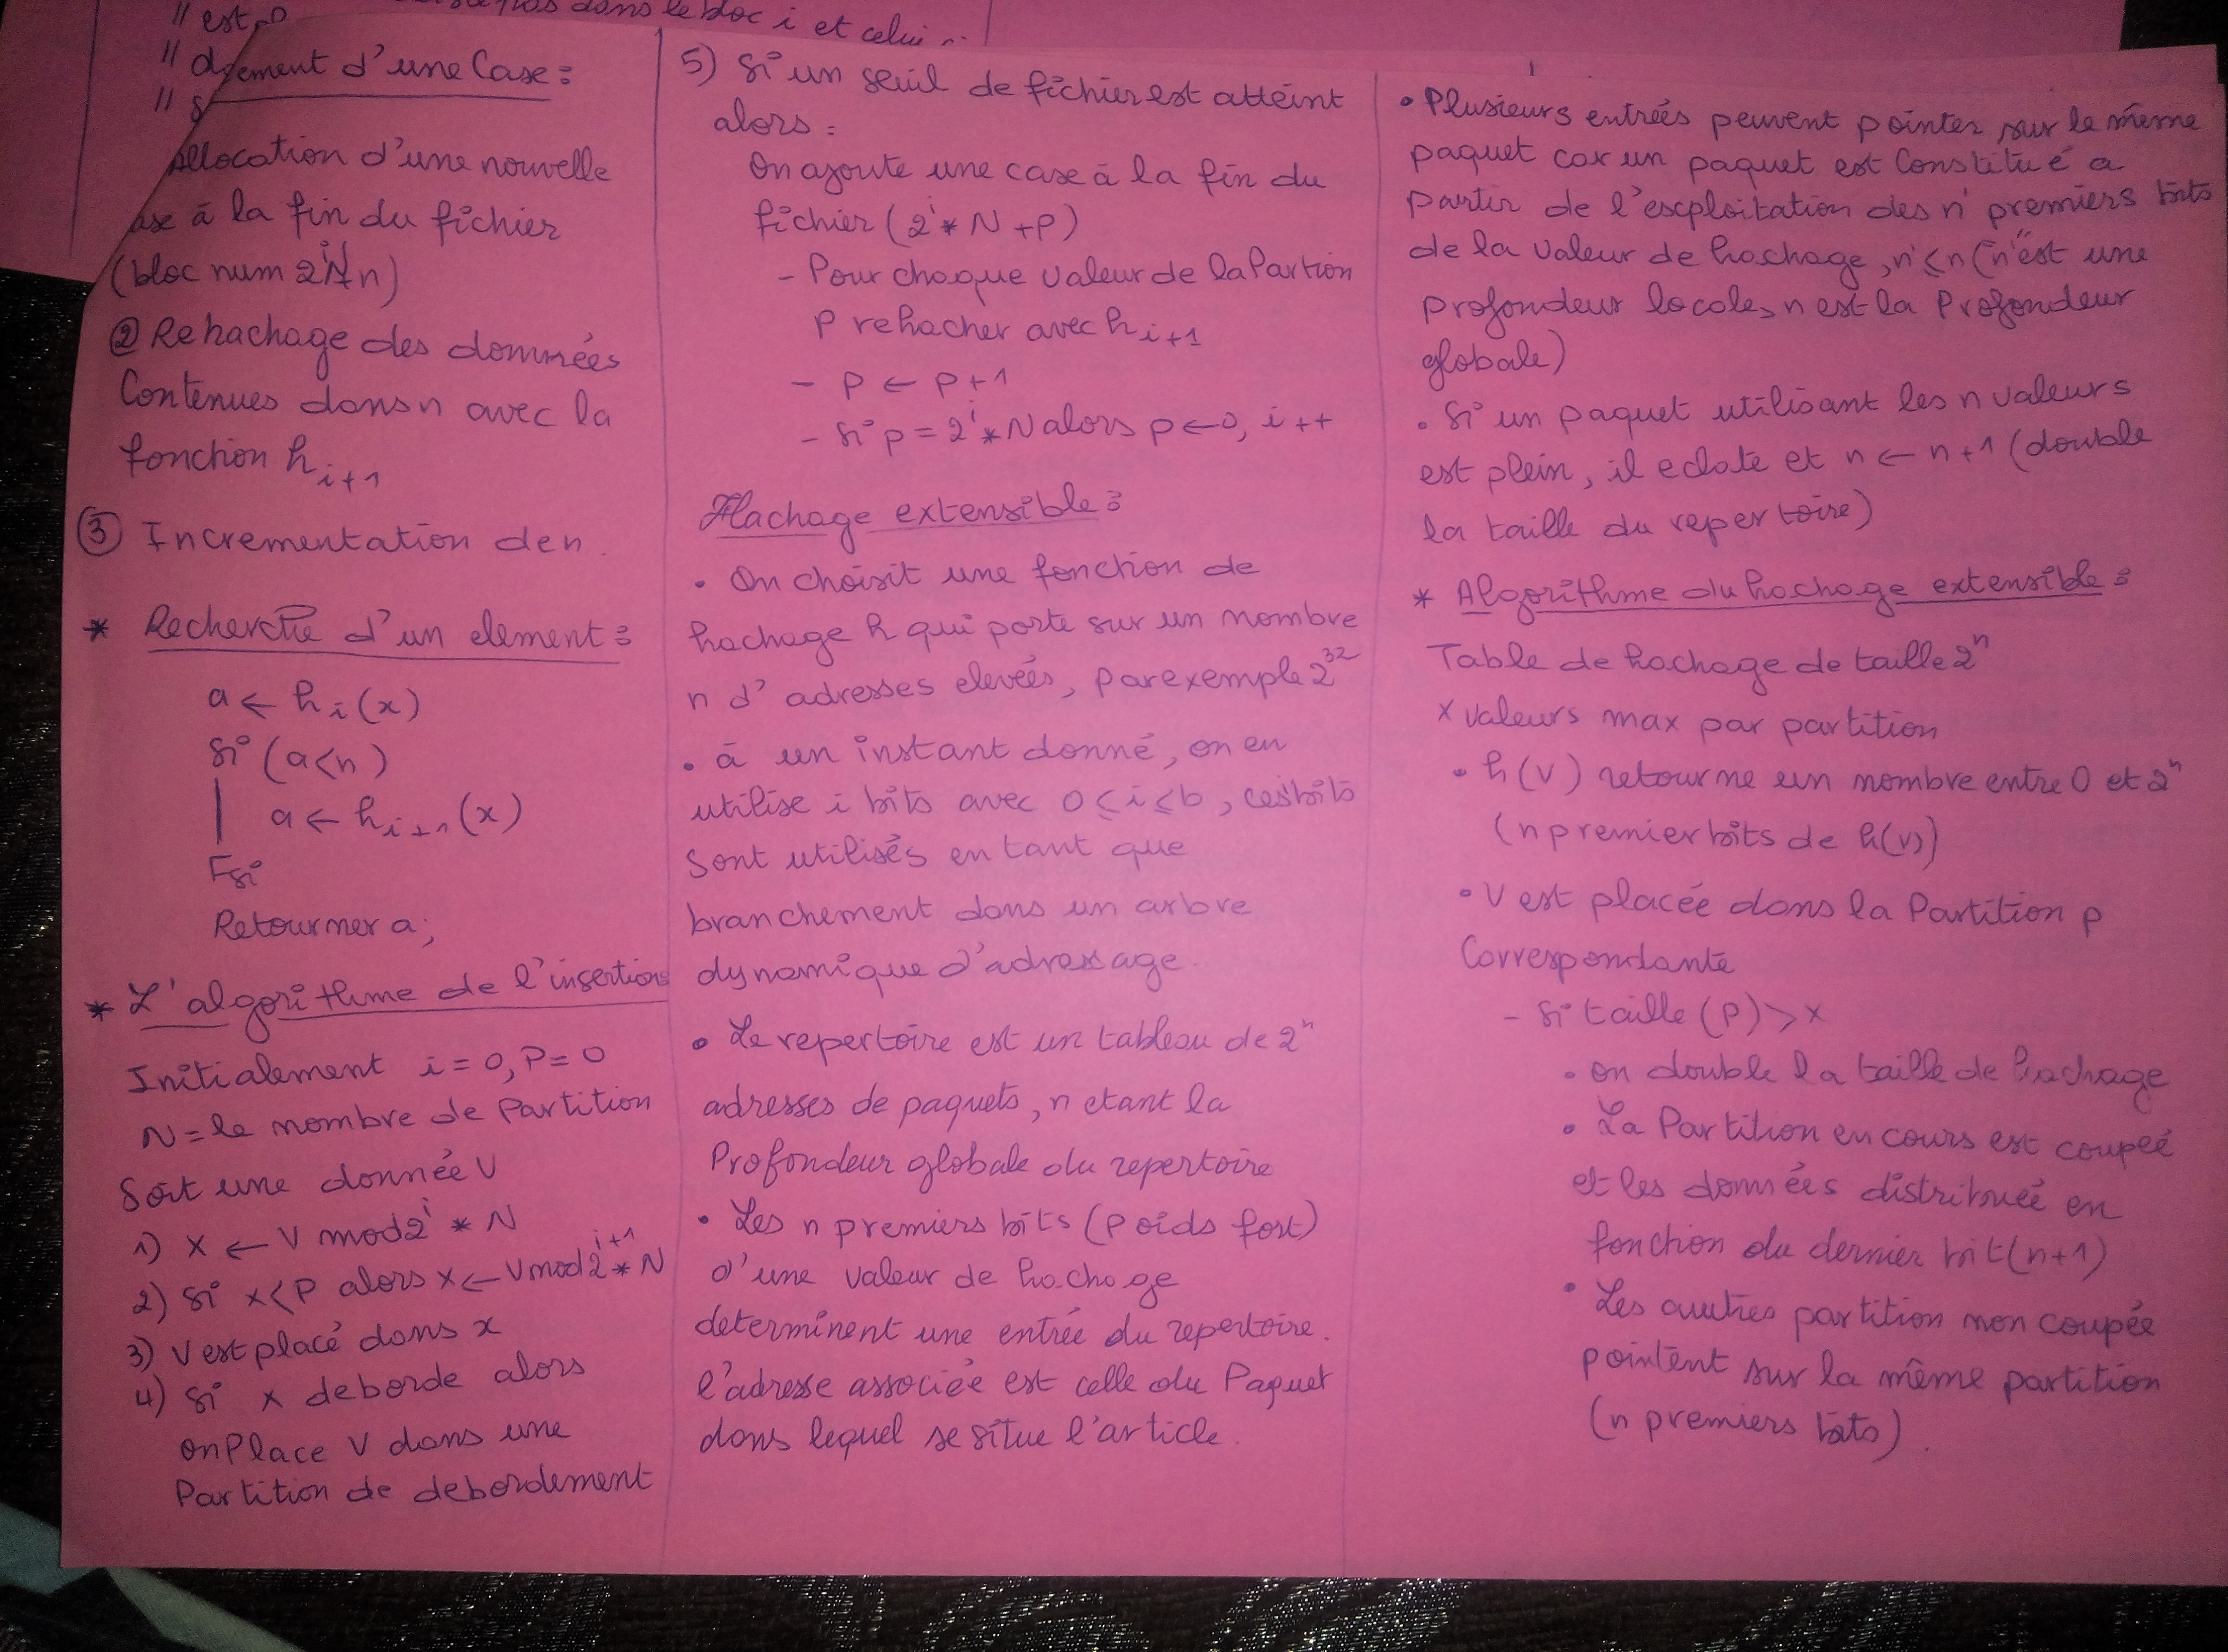 // est
dans le bloc i et celui
//
//
ement d'une Case :
Allocation d'une nouvelle
ase à la fin du fichier
(bloc num 2^i N + n)
② Rehachage des données
Contenues dans n avec la
fonction h_{i+1}
③ Incrementation de n.
* Recherche d'un element :
a ← h_i(x)
Si (a<n)
| a ← h_{i+1}(x)
Fsi
Retourner a;
* L'algorithme de l'insertion
Initialement i = 0, P = 0
N = le nombre de Partition
Soit une donnée V
1) x ← V mod 2^i * N
2) Si x < P alors x ← V mod 2^{i+1} * N
3) V est placé dans x
4) Si x deborde alors
on Place V dans une
Partition de debordement
5) Si un seuil de fichier est atteint
alors :
On ajoute une case à la fin du
fichier (2^i * N + P)
- Pour chaque valeur de la Partion
P rehacher avec h_{i+1}
- P ← P+1
- Si p = 2^i * N alors p ← 0, i++
Hachage extensible :
• On choisit une fonction de
hachage h qui porte sur un nombre
n d'adresses elevées, par exemple 2^32
• à un instant donné, on en
utilise i bits avec 0 ⩽ i ⩽ b, ces bits
Sont utilisés en tant que
branchement dans un arbre
dynamique d'adressage.
• Le repertoire est un tableau de 2^n
adresses de paquets, n etant la
Profondeur globale du repertoire
• Les n premiers bits (poids fort)
d'une valeur de hachage
determinent une entrée du repertoire.
l'adresse associée est celle du Paquet
dans lequel se situe l'article.
• Plusieurs entrées peuvent pointer sur le même
paquet car un paquet est Constitué a
partir de l'exploitation des n' premiers bits
de la valeur de hachage, n' ⩽ n (n' est une
profondeur locale, n est la Profondeur
globale)
• Si un paquet utilisant les n valeurs
est plein, il eclate et n ← n+1 (double
la taille du repertoire)
* Algorithme du hachage extensible :
Table de hachage de taille 2^n
x valeurs max par partition
• h(V) retourne un nombre entre 0 et 2^n
(n premier bits de h(V))
• V est placée dans la Partition p
Correspondante
- Si taille (P) > x
• on double la taille de hachage
• La Partition en cours est coupée
et les données distribuée en
fonction du dernier bit (n+1)
• Les autres partition non coupée
pointent sur la même partition
(n premiers bits).